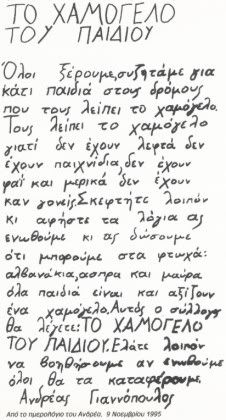 ΤΟ ΧΑΜΟΓΕΛΟ
ΤΟΥ ΠΑΙΔΙΟΥ
Όλοι ξέρουμε,συζητάμε για
κάτι παιδιά στους δρόμους
που τους λείπει το χαμόγελο.
Τους λείπει το χαμόγελο
γιατί δεν έχουν λεφτά δεν
έχουν παιχνίδια, δεν έχουν
φαϊ και μερικά δεν έχουν
καν γονείς.Σκεφτήτε λοιπόν
κι αφήστε τα λόγια ας
ενωθούμε κι ας δώσουμε
ότι μπορούμε στα φτωχά:
αλβανάκια,άσπρα και μαύρα
όλα παιδιά είναι και αξίζουν
ένα χαμόγελο.Αυτός ο σύλλογος
θα λέγετε: ΤΟ ΧΑΜΟΓΕΛΟ
ΤΟΥ ΠΑΙΔΙΟΥ.Ελάτε λοιπόν
να βοηθήσουμε αν ενωθούμε
όλοι θα τα καταφέρουμε.
Ανδρέας Γιαννόπουλος
Από το ημερολόγιο του Ανδρέα, 9 Νοεμβρίου 1995